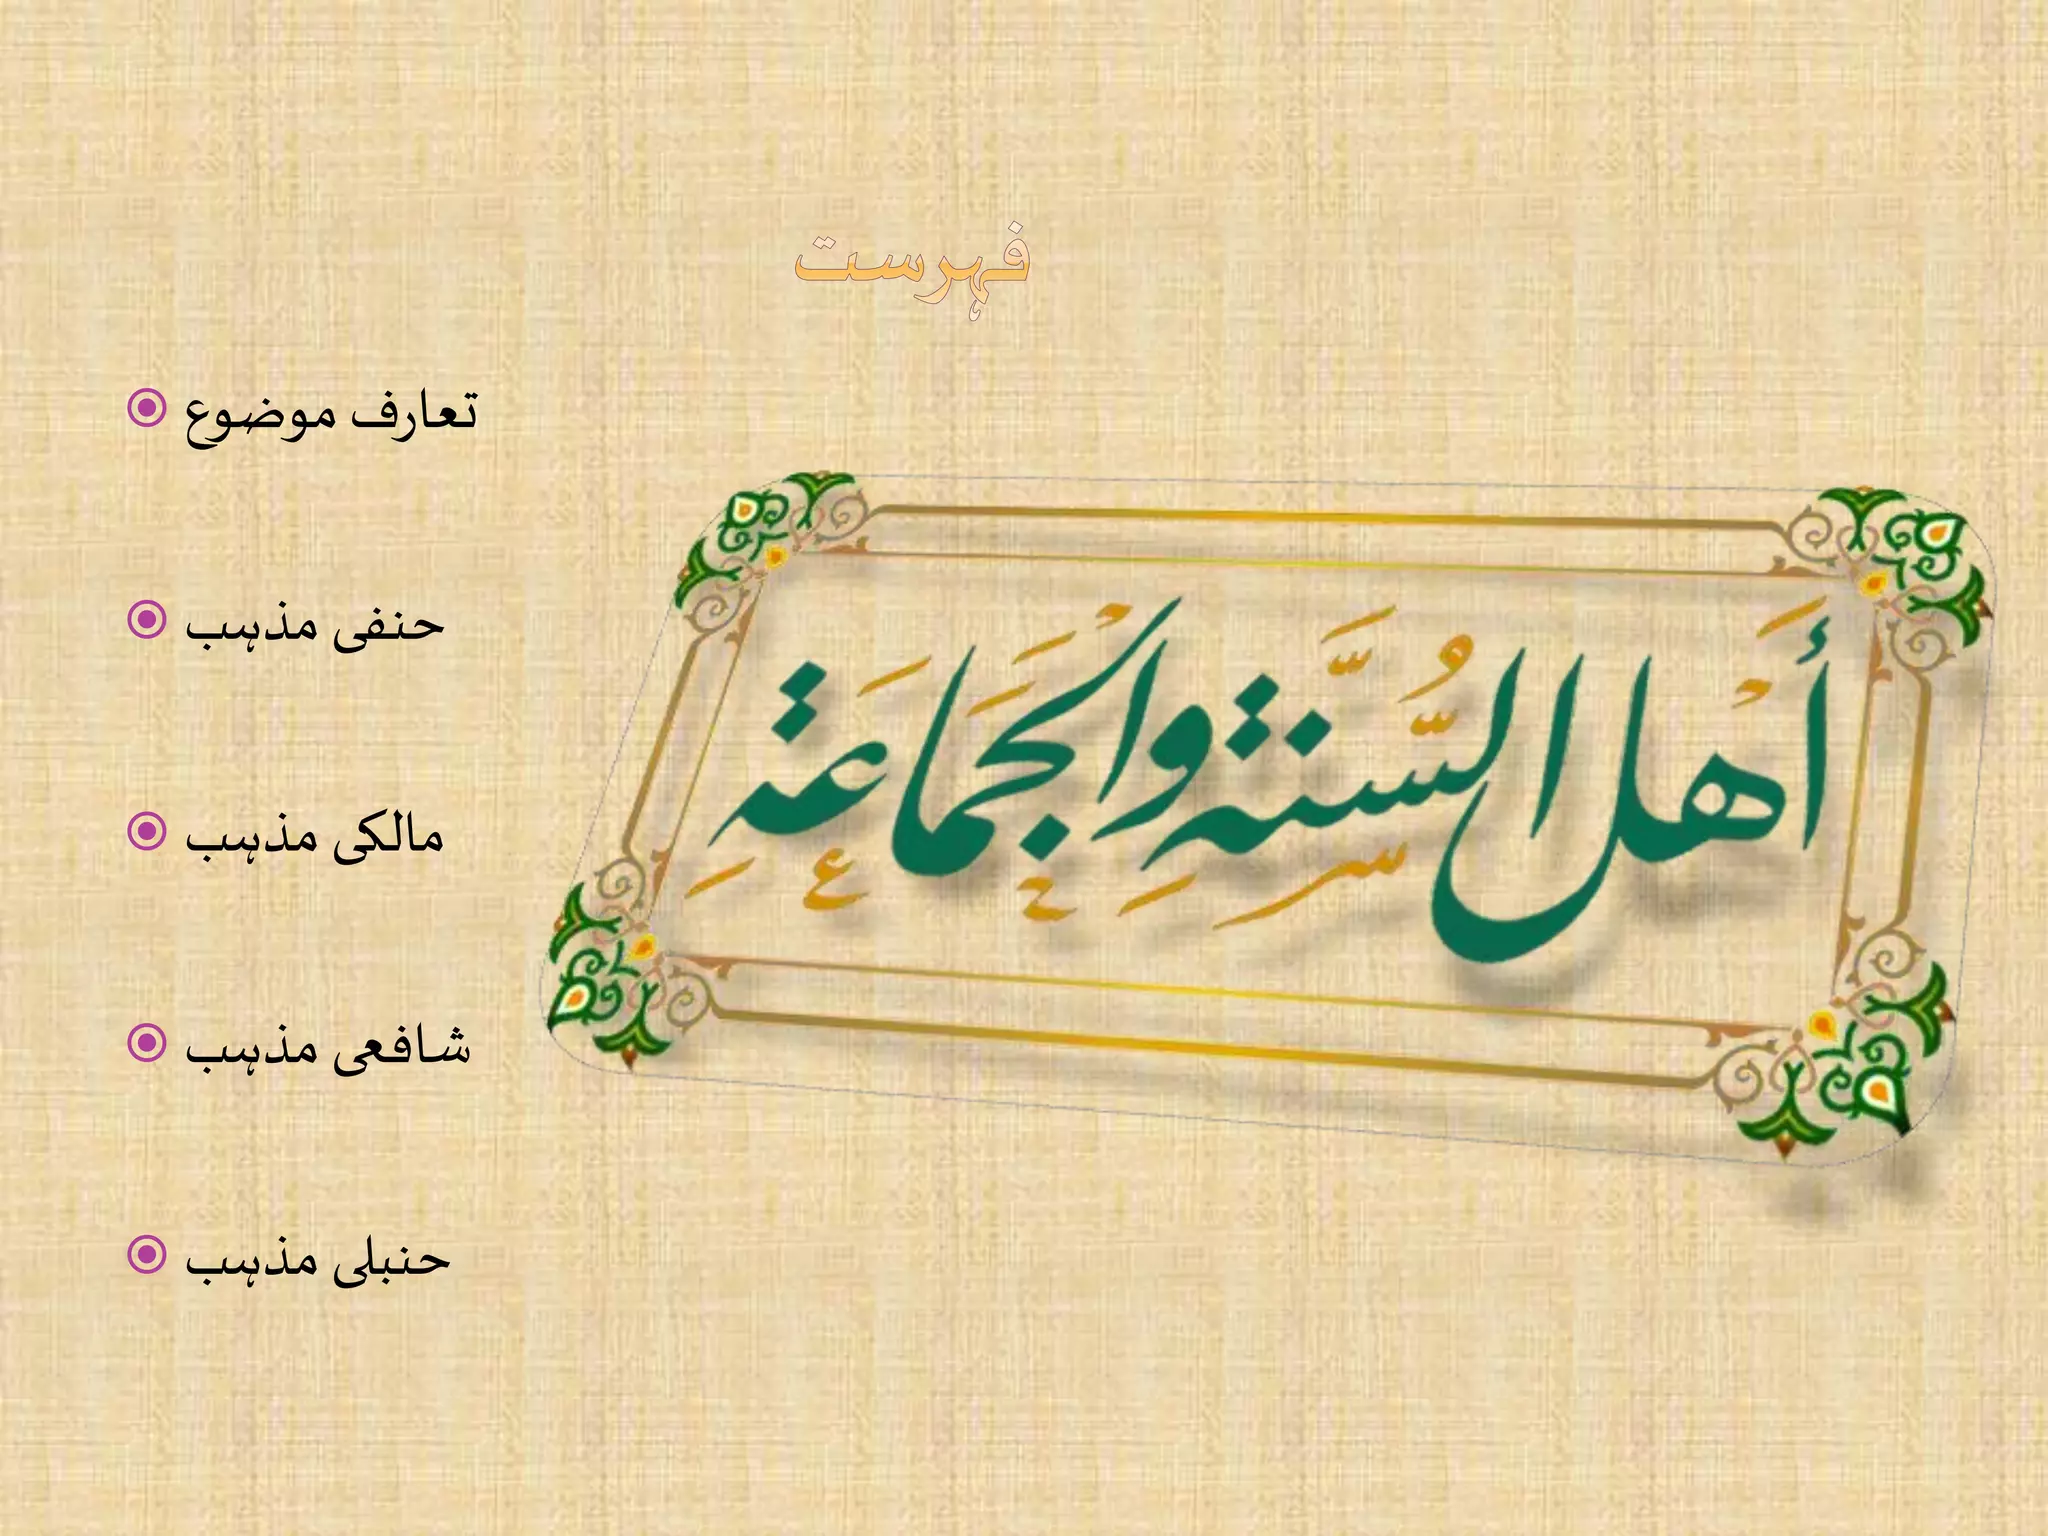 فہرست
تعارف موضوع
حنفی مذہب
مالکی مذہب
شافعی مذہب
حنبلی مذہب
أَهْل السُّنَّةِ وَالْجَمَاعَةِ